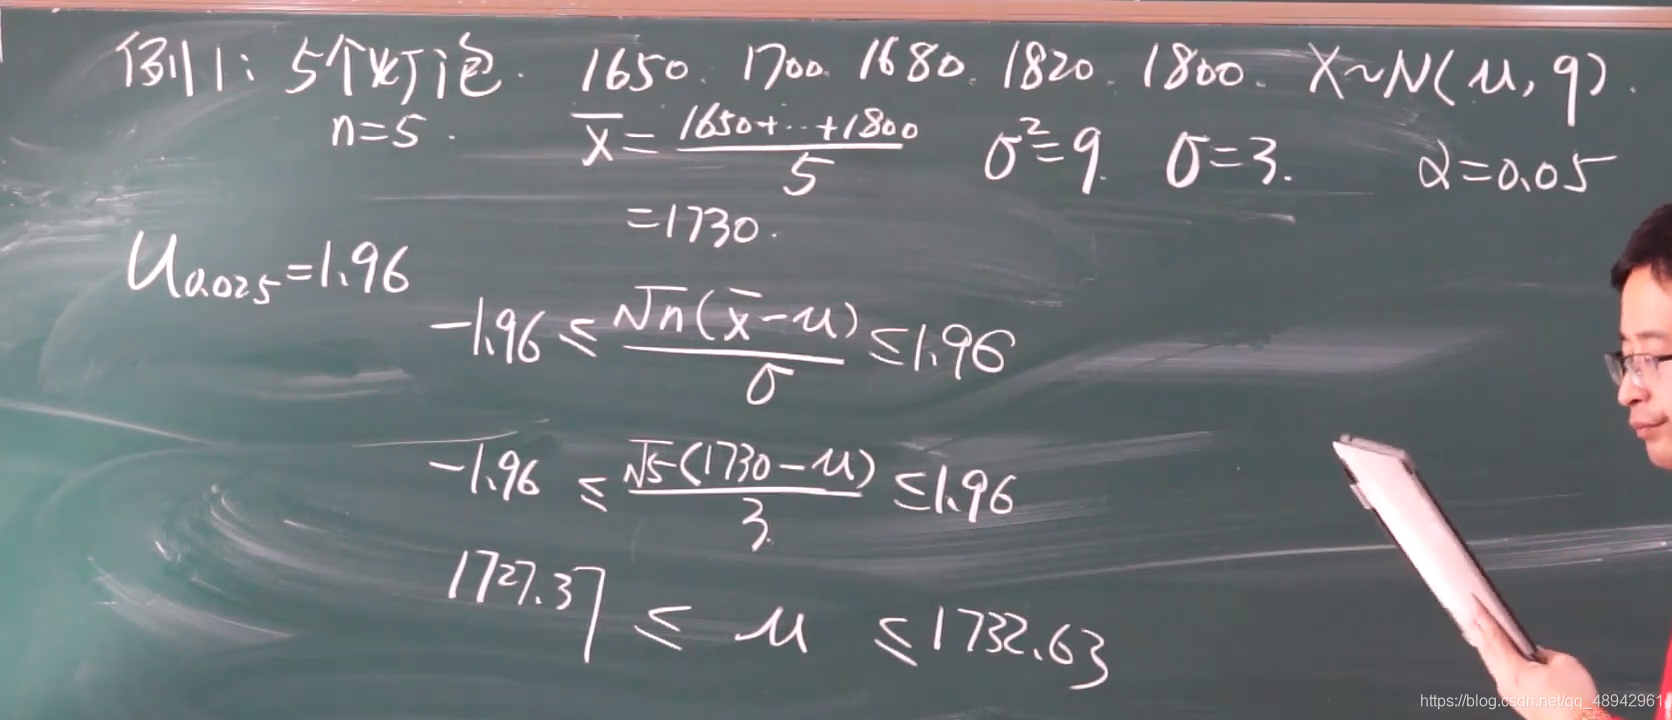 例1: 5个灯泡. 1650. 1700. 1680. 1820. 1800. X~N(μ, 9).
n=5. x̄ = (1650+…+1800)/5 σ²=9. σ=3. α=0.05
=1730.
U₀.₀₂₅=1.96
-1.96 ≤ √n(x̄-μ)/σ ≤1.96
-1.96 ≤ √5(1730-μ)/3 ≤1.96
1727.37 ≤ μ ≤1732.63
https://blog.csdn.net/qq_48942961